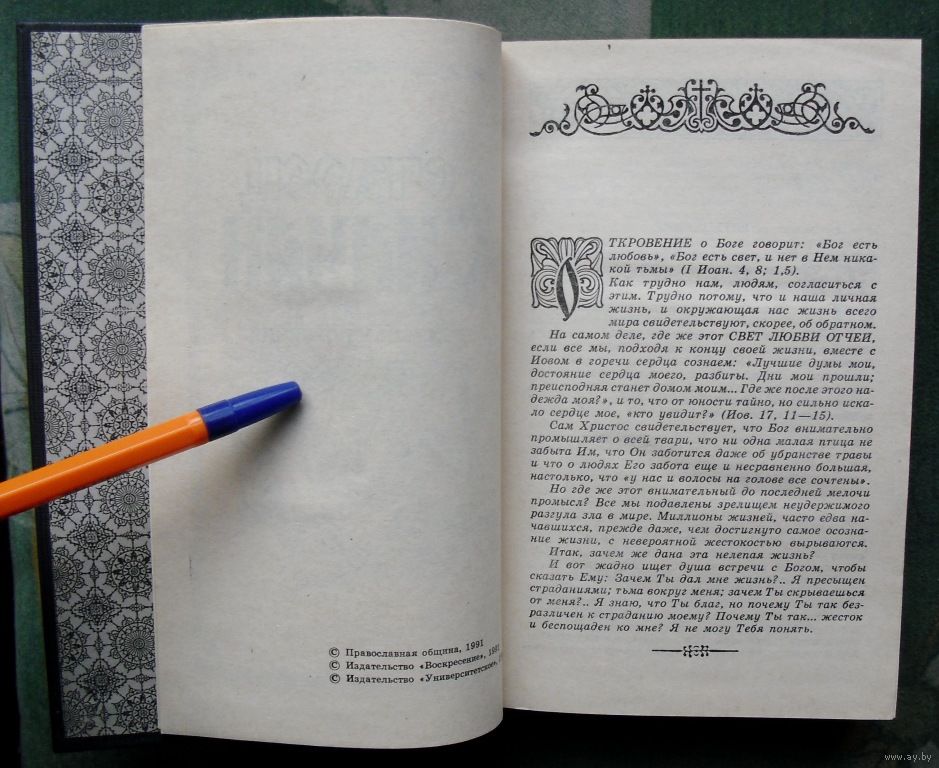 © Православная община, 1991
© Издательство «Воскресение», 1991
© Издательство «Университетское»,
ОТКРОВЕНИЕ о Боге говорит: «Бог есть
любовь», «Бог есть свет, и нет в Нем ника-
кой тьмы» (I Иоан. 4, 8; 1,5).
Как трудно нам, людям, согласиться с
этим. Трудно потому, что и наша личная
жизнь, и окружающая нас жизнь всего
мира свидетельствуют, скорее, об обратном.
На самом деле, где же этот СВЕТ ЛЮБВИ ОТЧЕЙ,
если все мы, подходя к концу своей жизни, вместе с
Иовом в горечи сердца сознаем: «Лучшие думы мои,
достояние сердца моего, разбиты. Дни мои прошли;
преисподняя станет домом моим... Где же после этого на-
дежда моя?», и то, что от юности тайно, но сильно иска-
ло сердце мое, «кто увидит?» (Иов. 17, 11—15).
Сам Христос свидетельствует, что Бог внимательно
промышляет о всей твари, что ни одна малая птица не
забыта Им, что Он заботится даже об убранстве травы
и что о людях Его забота еще и несравненно большая,
настолько, что «у нас и волосы на голове все сочтены».
Но где же этот внимательный до последней мелочи
промысл? Все мы подавлены зрелищем неудержимого
разгула зла в мире. Миллионы жизней, часто едва на-
чавшихся, прежде даже, чем достигнуто самое осозна-
ние жизни, с невероятной жестокостью вырываются.
Итак, зачем же дана эта нелепая жизнь?
И вот жадно ищет душа встречи с Богом, чтобы
сказать Ему: Зачем Ты дал мне жизнь?.. Я пресыщен
страданиями; тьма вокруг меня; зачем Ты скрываешься
от меня?.. Я знаю, что Ты благ, но почему Ты так без-
различен к страданию моему? Почему Ты так... жесток
и беспощаден ко мне? Я не могу Тебя понять.
www.ay.by